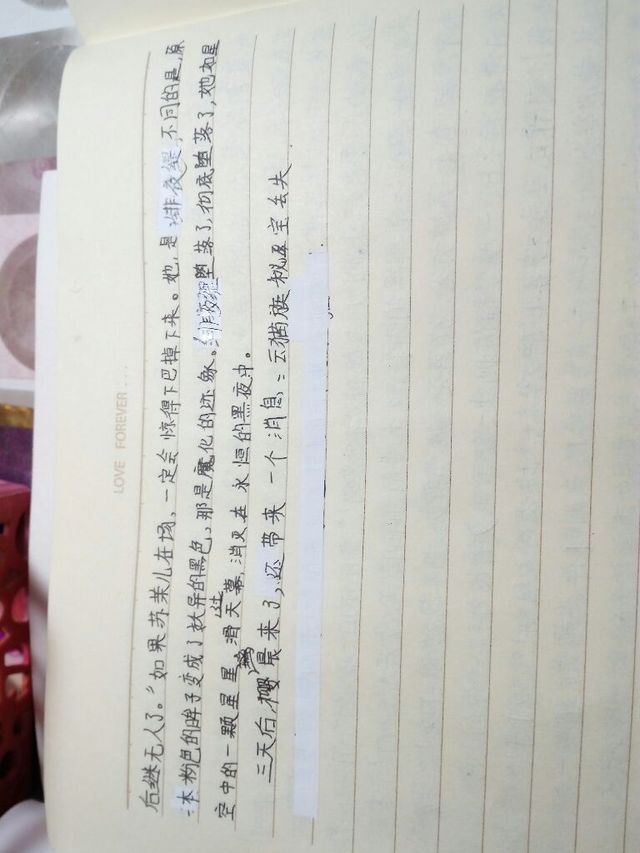 LOVE FOREVER...
后继无人了。”如果苏茉儿在场，一定会惊得下巴掉下来。她，是绯夜缇，不同的是，原
本粉色的眸子变成了妖异的黑色，那是魔化的迹象。绯夜缇堕落了，彻底堕落了，她如星
空中的一颗星星，滑过天幕，消灭在永恒的黑夜中。
三天后，樱晨来了，还带来一个消息：云猫族秘宝丢失